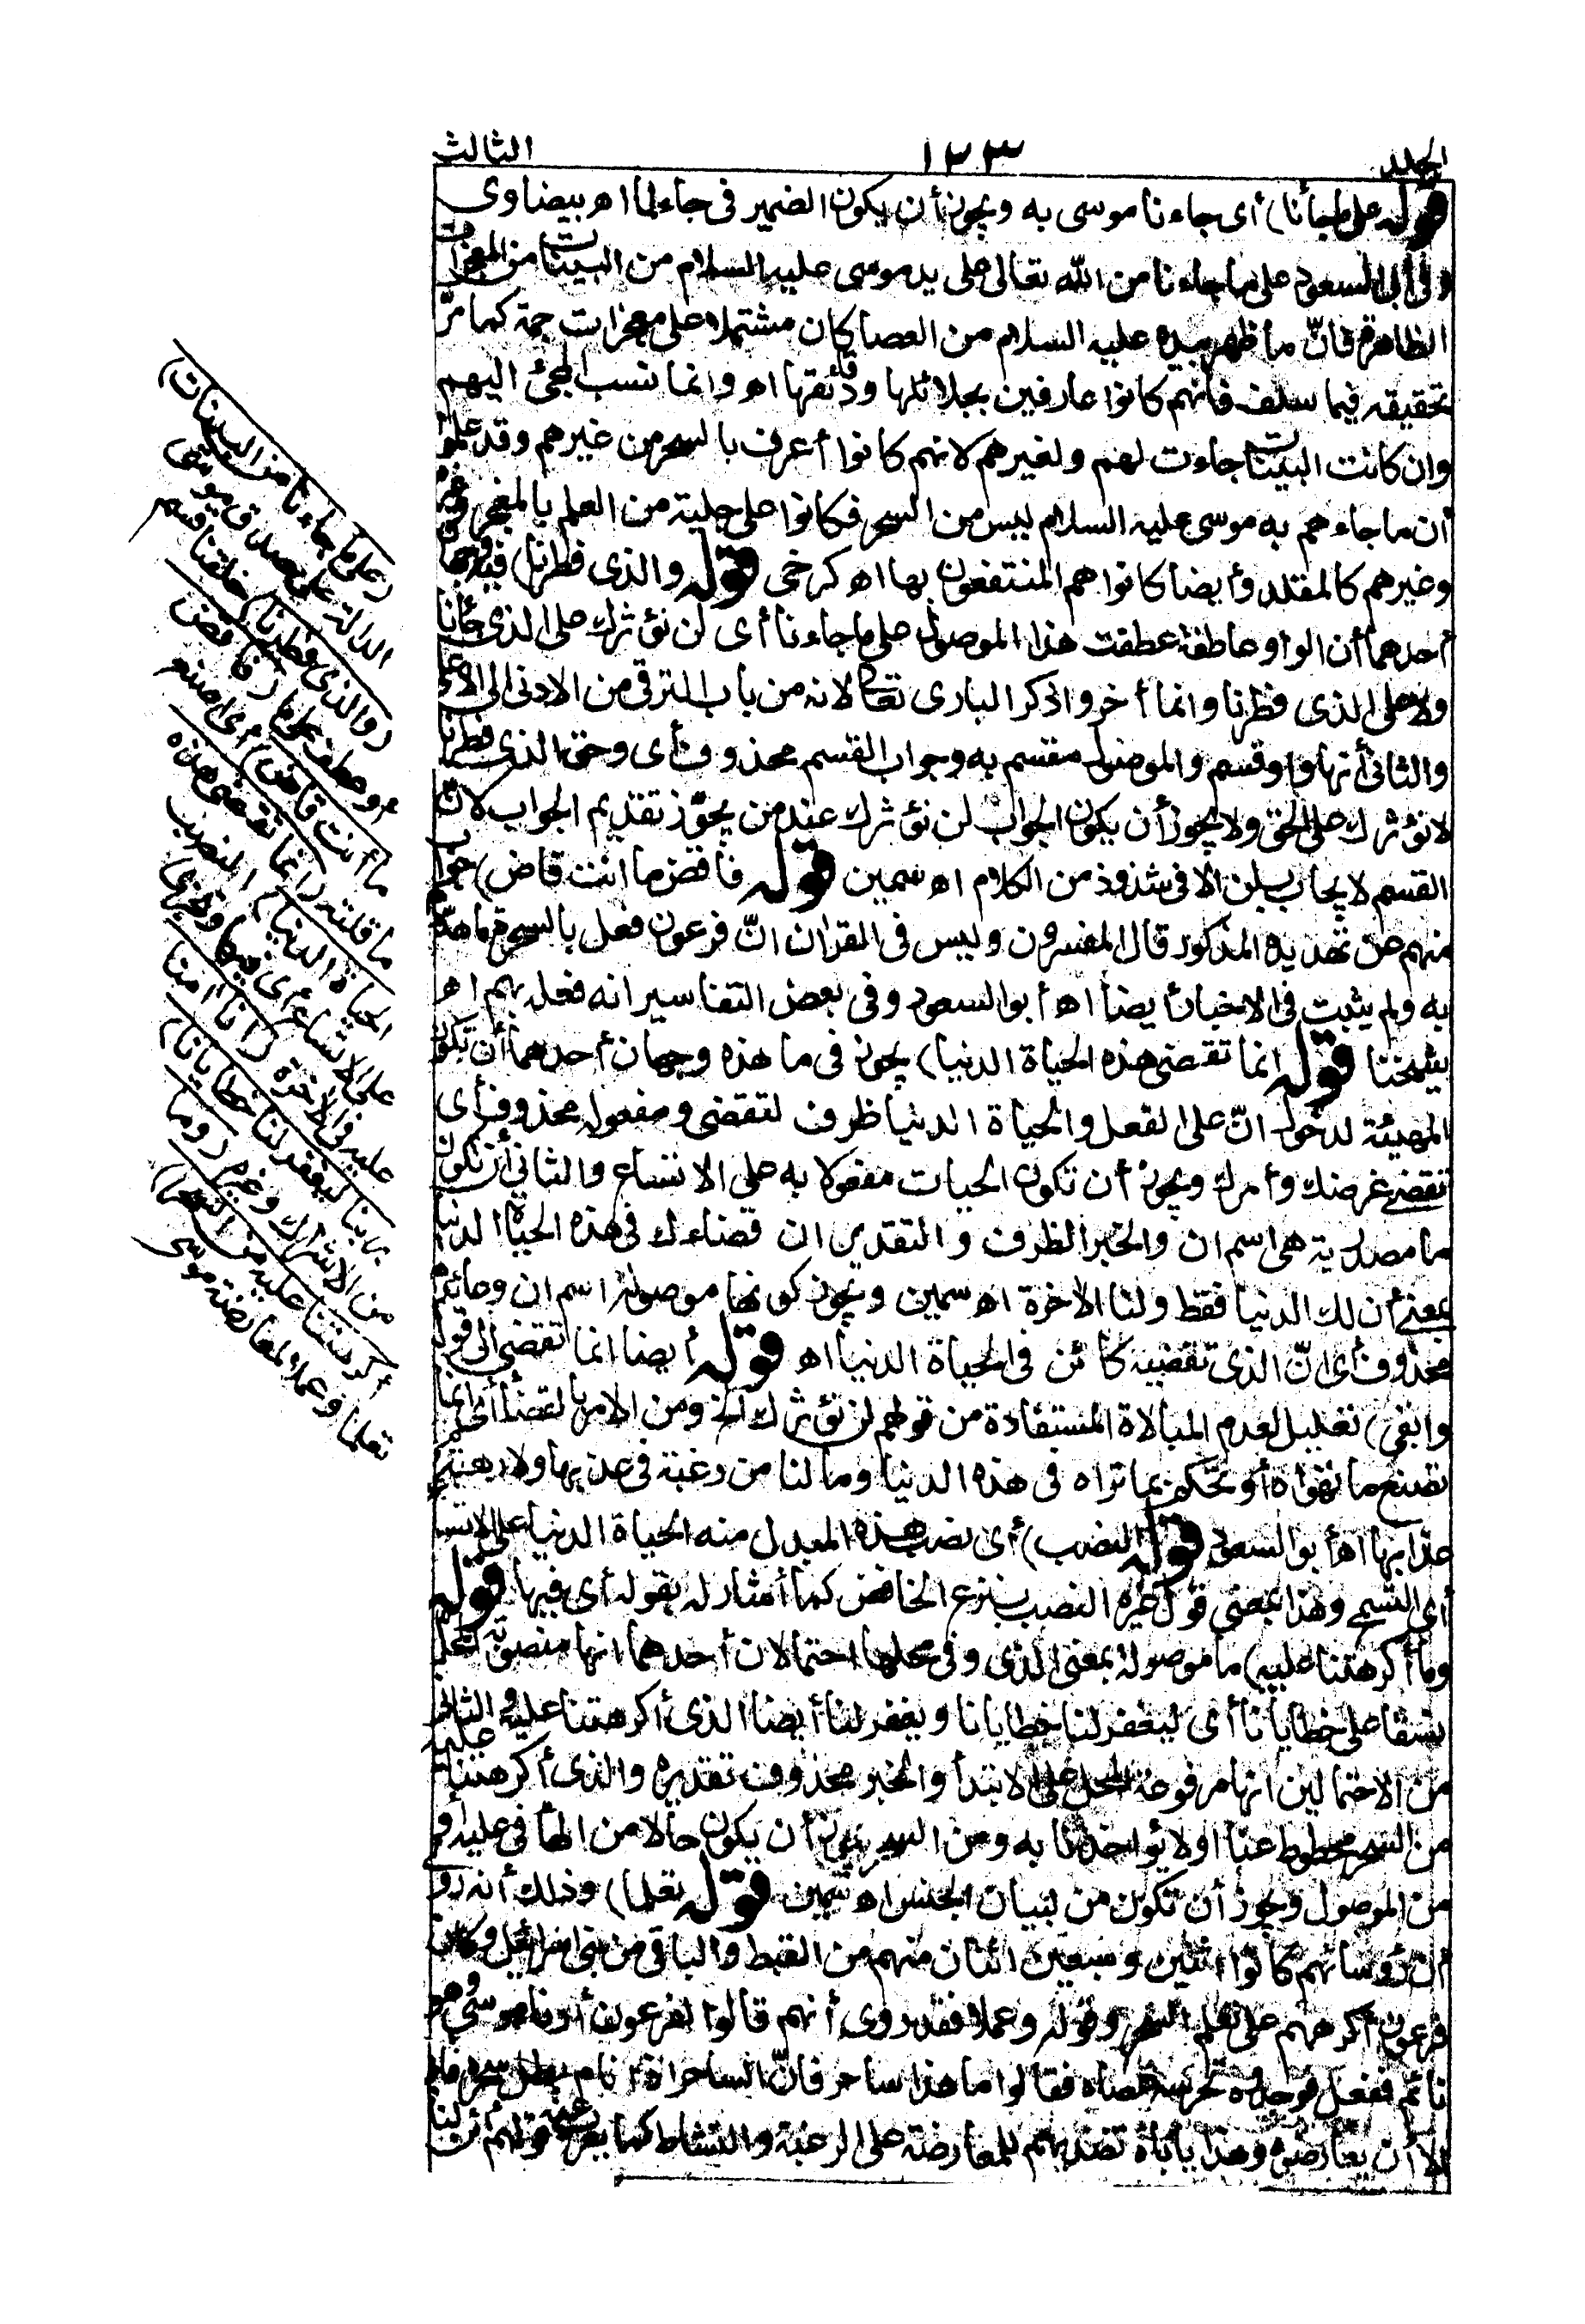 الجلد ١٢٣ الثالث
قوله على ما جاءنا) أى جاءنا موسى به ويجوز أن يكون الضمير فى جاء لما اه بيضاوى
وفى أبى السعود على ما جاءنا من الله تعالى على يد موسى عليه السلام من البينات من المعجزات
الظاهرة فانّ ما ظهر بيده عليه السلام من العصا كان مشتملا على معجزات جمة كما مرّ
تحقيقه فيما سلف فانهم كانوا عارفين بجلائلها ودقائقها اه وانما نسب المجئ اليهم
وان كانت البينات جاءت لهم ولغيرهم لانهم كانوا أعرف بالسحر من غيرهم وقد علموا
أن ما جاءهم به موسى عليه السلام ليس من السحر فكانوا على جلية من العلم بالمعجز وغيره
وغيرهم كالمقلد وأيضا كانوا هم المنتفعون بها اه كرخى قوله والذى فطرنا) فيه وجهان
أحدهما أن الواو عاطفة عطفت هذا الموصول على ما جاءنا أى لن نؤثرك على الذى جاءنا
ولا على الذى فطرنا وانما أخروا ذكر البارى تعالى لانه من باب الترقى من الادنى الى الاعلى
والثانى أنها واو قسم والموصول مقسم به وجواب القسم محذوف أى وحق الذى فطرنا
لا نؤثرك على الحق ولا يجوز أن يكون الجواب لن نؤثرك عند من يجوّز تقديم الجواب لانّ
القسم لا يجاب بلن الا فى شذوذ من الكلام اه سمين قوله فاقض ما انت قاض) جواب
منهم عن تهديده المذكور قال المفسرون وليس فى القران انّ فرعون فعل بالسحرة ما هدّدهم
به ولم يثبت فى الاخبار أيضا اه أبو السعود وفى بعض التفاسير انه فعله بهم اه
شيخنا قوله انما تقضى هذه الحياة الدنيا) يجوز فى ما هذه وجهان أحدهما أن تكون
المهيئة لدخول انّ على الفعل والحياة الدنيا ظرف لتقضى ومفعوله محذوف أى
تقضى غرضك وأمرك ويجوز أن تكون الحيات مفعولا به على الاتساع والثانى أن تكون
ما مصدرية هى اسم ان والخبر الظرف والتقدير ان قضاءك فى هذه الحياة الدنيا
بمعنى أن لك الدنيا فقط ولنا الاخرة اه سمين ويجوز كونها موصولة اسم ان وعائدها
محذوف أى انّ الذى تقضيه كائن فى الحياة الدنيا اه قوله أيضا انما تقضى الى قوله
وابقى) تعليل لعدم المبالاة المستفادة من قولهم لن نؤثرك الخ ومن الامر بالقضاء أى انما
تصنع ما تهواه أو تحكم بما تراه فى هذه الدنيا وما لنا من رغبة فى عذبها ولا رهبة من
عذابها اه أبو السعود قوله النصب) أى نصب هذه المبدل منه الحياة الدنيا على الاتساع
أى التسمح وهذا بمعنى قول غيره النصب بنزع الخافض كما أشار له بقوله أى فيها قوله
وما أكرهتنا عليه) ما موصولة بمعنى الذى وفى محلها احتمالان أحدهما انها منصوبة المحل
نسقا على خطايانا أى ليغفر لنا خطايانا ويغفر لنا أيضا الذى أكرهتنا عليه والثانى
من الاحتمالين انها مرفوعة المحل على الابتدأ والخبر محذوف تقديره والذى أكرهتنا عليه
من السحر محطوط عنا او لا يؤاخذنا به ومن السحر يجوز أن يكون حالا من الهاء فى عليه أو
من الموصول ويجوز أن تكون من لبيان الجنس اه سمين قوله تعلما) وذلك أنه روى
أن رؤساءهم كانوا اثنين وسبعين اثنان منهم من القبط والباقى من بنى اسرائيل وكان
فرعون أكرههم على تعلم السحر وقوله وعملا فقد روى أنهم قالوا لفرعون أرنا موسى وهو
نائم ففعل فوجدوه تحرسه عصاه فقالوا ما هذا ساحر فانّ الساحر اذا نام بطل سحره فأبى
الا أن يعارضوه وهذا يأباه تصديهم للمعارضة على الرغبة والنشاط كما يعرب عنه قولهم أئن لنا
(على ما جاءنا من البينات)
الدالة على صدق موسى
(والذى فطرنا) خلقنا قسم
او عطف على ما (فاقض
ما أنت قاض) أى اصنع
ما قلته (انما تقضى هذه
الحياة الدنيا) النصب
على الاتساع أى فيها وتجزى
عليه فى الاخرة (انا امنا
بربنا ليغفر لنا خطايانا)
من الاشراك وغيره (وما
أكرهتنا عليه من السحر)
تعلما وعملا لمعارضة موسى